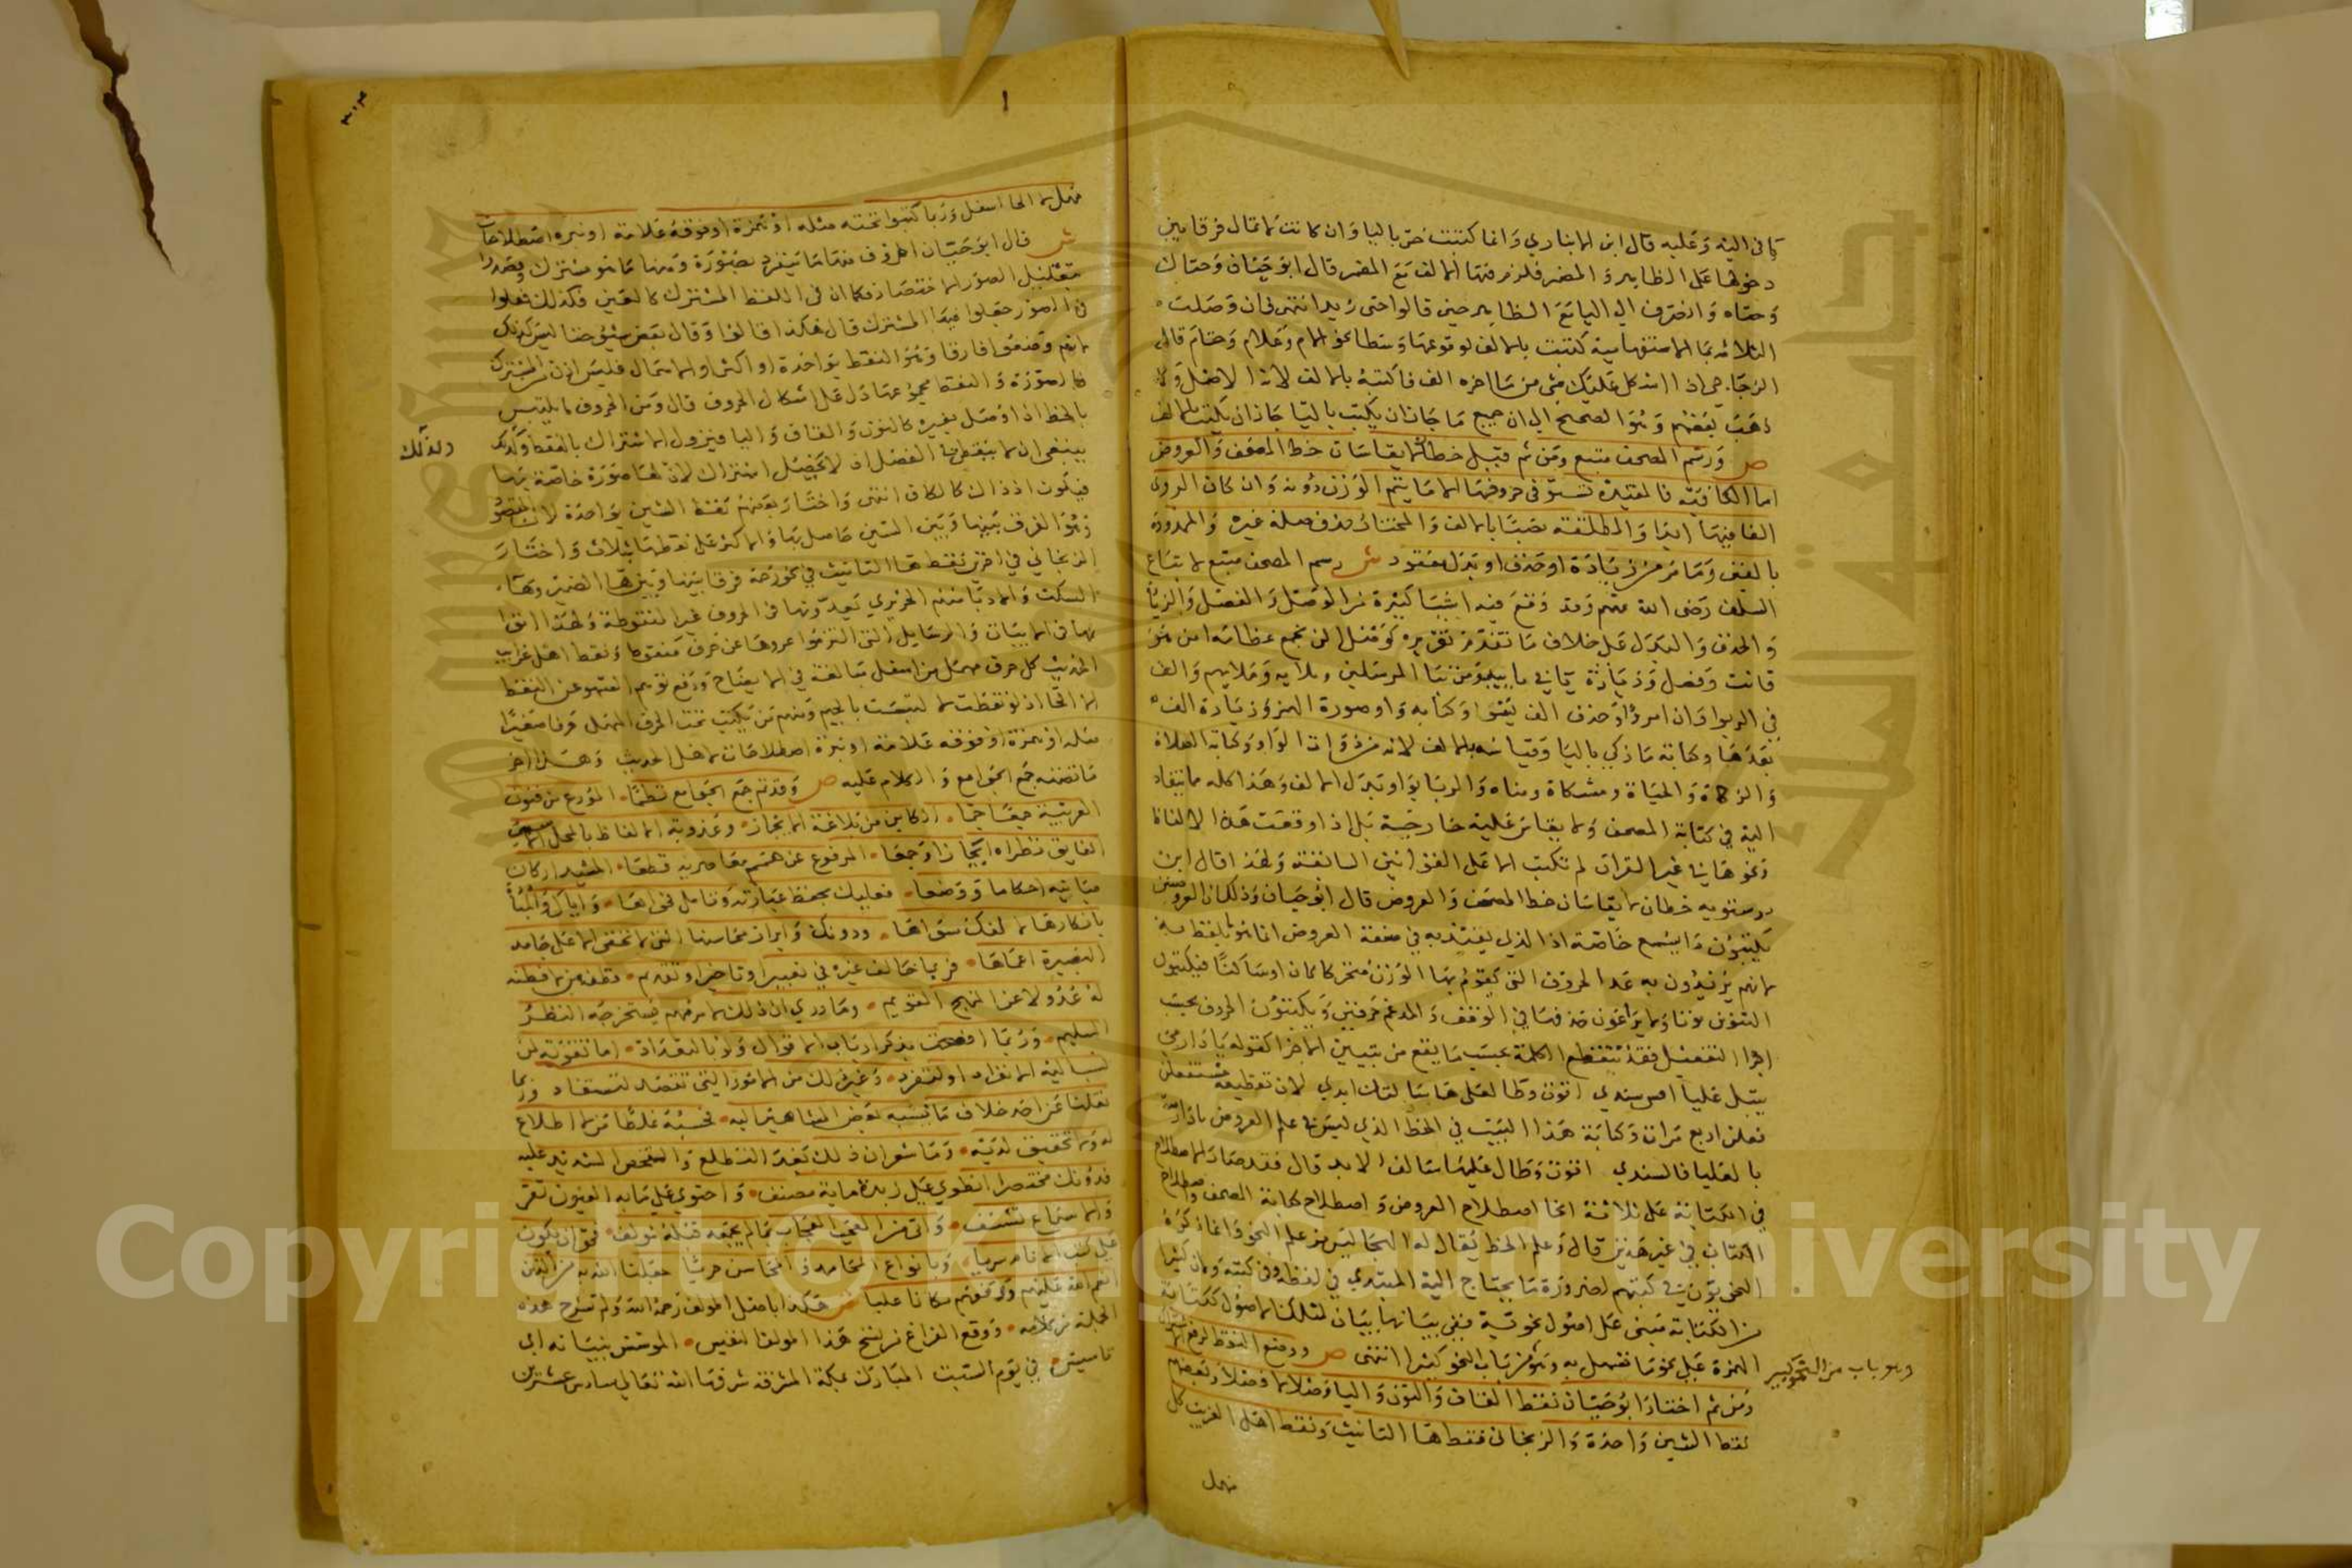 كما في اليه وعليه قال ابن الانباري وانما كتبت حتى باليا وان كانت لا تمال فرقا بين
دخولها على الظاهر والمضمر فلزم فيها الالف مع المضمر قال ابو حيان وحتاك
وحتاه وانصرف الى اليا مع الظاهر حين قالوا حتى زيد انتهى فان وصلت
الثلاثة بما الاستفهامية كتبت بالالف لوقوعها وسطا نحو الام وعلام وحتام قال
الزجاجي اذا اشكل عليك شي من هذا اخره الف فاكتبه بالالف لانه الاصل ولا
ذهب بعضهم وهو الصحيح الى ان جميع ما جاز ان يكتب باليا جاز ان يكتب بالالف
ص ورسم المصحف متبع ومن ثم قيل خطان لا يقاسان خط المصحف والعروض
اما القافية فالمقيدة تستوفى حروفها الا ما يتم الوزن دونه وان كان الروي
الفا فيها ابدا والمطلقة نصبا بالالف والمختار حذف صلة غيره والممدودة
بالفين وما مر من زيادة او حذف او بدل مفقود ش رسم المصحف متبع لاتباع
السلف رضي الله عنهم وقد وقع فيه اشيا كثيرة من الوصل والفصل والزيادة
والحذف والبدل على خلاف ما تقدم تقريره كوصل الن نجمع عظامه امن هو
قانت وفصل وزيادة يا في بايد ومن نبا المرسلين وملايه وملايهم والف
في الربوا وان امرؤا وحذف الف وكتابه واو صورة الهمز وزيادة الف
بعدها وكتابة ما زكي باليا وقياسه بالالف لانه من ذوات الواو وكتابة الصلاة
والزكاة والحياة ومشكاة ومناة والربا بواو بدل الالف وهذا كله مما ينقاد
اليه في كتابة المصحف ولا يقاس عليه خارجه بل اذا وقعت هذه الالفاظ
ونحوها في غير القران لم تكتب الا على القوانين السابقة ولهذا قال ابن
درستويه خطان لا يقاسان خط المصحف والعروض قال ابو حيان وذلك ان العروضيين
يكتبون ما يسمع خاصة اذ الذي يعتد به في صنعة العروض انما هو ما يلفظ به
لانهم يريدون به عد الحروف التي يقوم بها الوزن متحركا كان او ساكنا فيكتبون
التنوين نونا ولا يراعون حذفها في الوقف والمدغم حرفين ويكتبون الحروف بحسب
اجزا التفعيل فقد تتقطع الكلمة بحسب ما يقع من تبيين الاجزا كقوله يا دار مي
تبل عليا اسسندي اقوت وطا لعلي هاسا لفل ابدي لان تقطيعه مستفعلن
فعلن اربع مرات وكتابة هذا البيت في الخط الذي ليس في علم العروض يا دار مية
بالعليا فالسند اقوت وطال عليها سالف الابد قال فقد صار الاصطلاح
في الكتابة على ثلاثة انحا اصطلاح العروض واصطلاح كتابة المصحف واصطلاح
الكتاب في غير هذين قال وعلم الخط يقال له الهجا ليس من علم النحو وانما ذكره
النحويون في كتبهم لضرورة ما يحتاج اليه المبتدي في لفظه وفي كتبه ولان كثيرا
من الكتابة مبني على اصول نحوية ففي بيانها بيان لتلك الاصول ككتابة
الهمزة على نحو ما تسهل به وهو من باب النحو كبيرا انتهى ص ووضع النقط لرفع الاشتراك
وهو باب من النحو كبير
ومن ثم اختار ابو حيان نقط القاف والنون واليا وصلا لا فصلا وبعضهم
نقط الشين واحدة والزنجاني نقط ها التانيث ونقط اهل الغريب كل
مهمل
مهمل الا الحا اسفل وربما كتبوا تحته مثله او همزة او فوقه علامة او نبرة اصطلاحات
ش قال ابو حيان الحروف منها ما ينفرد بصورة ومنها ما هو مشترك وقصدوا
بتقليل الصور الاختصار فكما ان في اللفظ المشترك كالعين فكذلك فعلوا
في الصور جعلوا فيها المشترك قال هكذا قالوا وقال بعض شيوخنا ليس كذلك
لانهم وضعوا فارقا وهو النقط بواحدة او اكثر او الاهمال فليس اذن من المشترك
فالصورة والنقط مجموعهما دل على اشكال الحروف قال ومن الحروف ما يلتبس
بالخط اذا وصل بغيره كالنون والقاف واليا فيزول الاشتراك بالنقط ولذلك
ولذلك
ينبغي ان لا ينقط في الفصل اذ لا يحصل اشتراك لان لها صورة خاصة بها
فيكون اذ ذاك كالكاف انتهى واختار بعضهم نقط الشين بواحدة لان المقصود
وهو الفرق بينها وبين السين حاصل بها والاكثر على نقطها بثلاث واختار
الزنجاني في اخرين نقط ها التانيث في نحو رحمة فرقا بينها وبين ها الضمير وها
السكت والادبا منهم الحريري يعدونها في الحروف غير المنقوطة ولهذا اتوا
بها في الابيات والرسايل التي التزموا عروها عن حرف منقوط ونقط اهل غريب
الحديث كل حرف مهمل من اسفل مبالغة في الايضاح ورفع توهم السهو عن النقط
الا الحا اذ لو نقطت لالتبست بالجيم ومنهم من يكتب تحت الحرف المهمل حرفا صغيرا
مثله او همزة او فوقه علامة او نبرة اصطلاحات لاهل الحديث وهذا اخر
ما تضمنه جمع الجوامع والكلام عليه ص وقد تم جمع الجوامع نظما المودع من فنون
العربية جمعا جما الكاين من بلاغة الايجاز وعذوبة الالفاظ بالمحل الاسمى
الفايق نظراه ايجازا وجمعا المرفوع عن همم معاصريه قطعا المشيد اركان
مبانيه احكاما ووضعا فعليك بحفظ عباراته وتامل فحواها واياك والمبادرة
بانكارها لالفك سواها ودونك وابراز محاسنها التي لا تخفى الا على جامد
البصيرة اعماها فربما خالف غيره في تعبير او تاخير او تقديم فظنه من لا فطنة
له عدولا عن المنهج القويم وما دري ان ذلك لامر مهم يستخرجه النظر
السليم وربما افصحت بذكر ارباب الاقوال ولا بالتعداد اما لتقويته لمن
نسب اليه الانفراد او لتفرد وغير ذلك من الامور التي تقصد لتستفاد وربما
نقلنا عن احد خلاف ما نسبه بعض المشاهير اليه فحسبه غلطا من لا اطلاع
له ولا تحقيق لديه وما شعر ان ذلك بعد التطلع والتفحص الشديد عليه
فدونك مختصرا انطوى على زبدة ماية مصنف واحتوى على ما به العيون تقر
والاسماع تشنف واتى من العجب العجاب بما لم يجمعه قبله مولف فحق ان يكون
على كتب الانام سريا وبانواع المحامد والمحاسن حريا جعلنا الله به من الذين
انعم الله عليهم ورفعهم مكانا عليا ش هكذا باصل المولف رحمه الله ولم تشرح هذه
الجملة من كلامه ووقع الفراغ من نسخ هذا المولف النفيس الموسس بنيانه اي
تاسيس في يوم السبت المبارك بمكة المشرفة شرفها الله تعالى سادس عشرين
Copyright © King Saud University